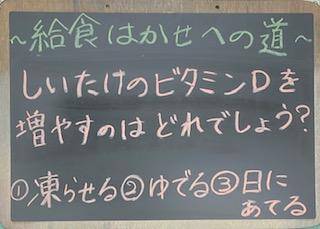 ~給食はかせへの道~
しいたけのビタミンDを
増やすのはどれでしょう?
①凍らせる②ゆでる③日に
あてる